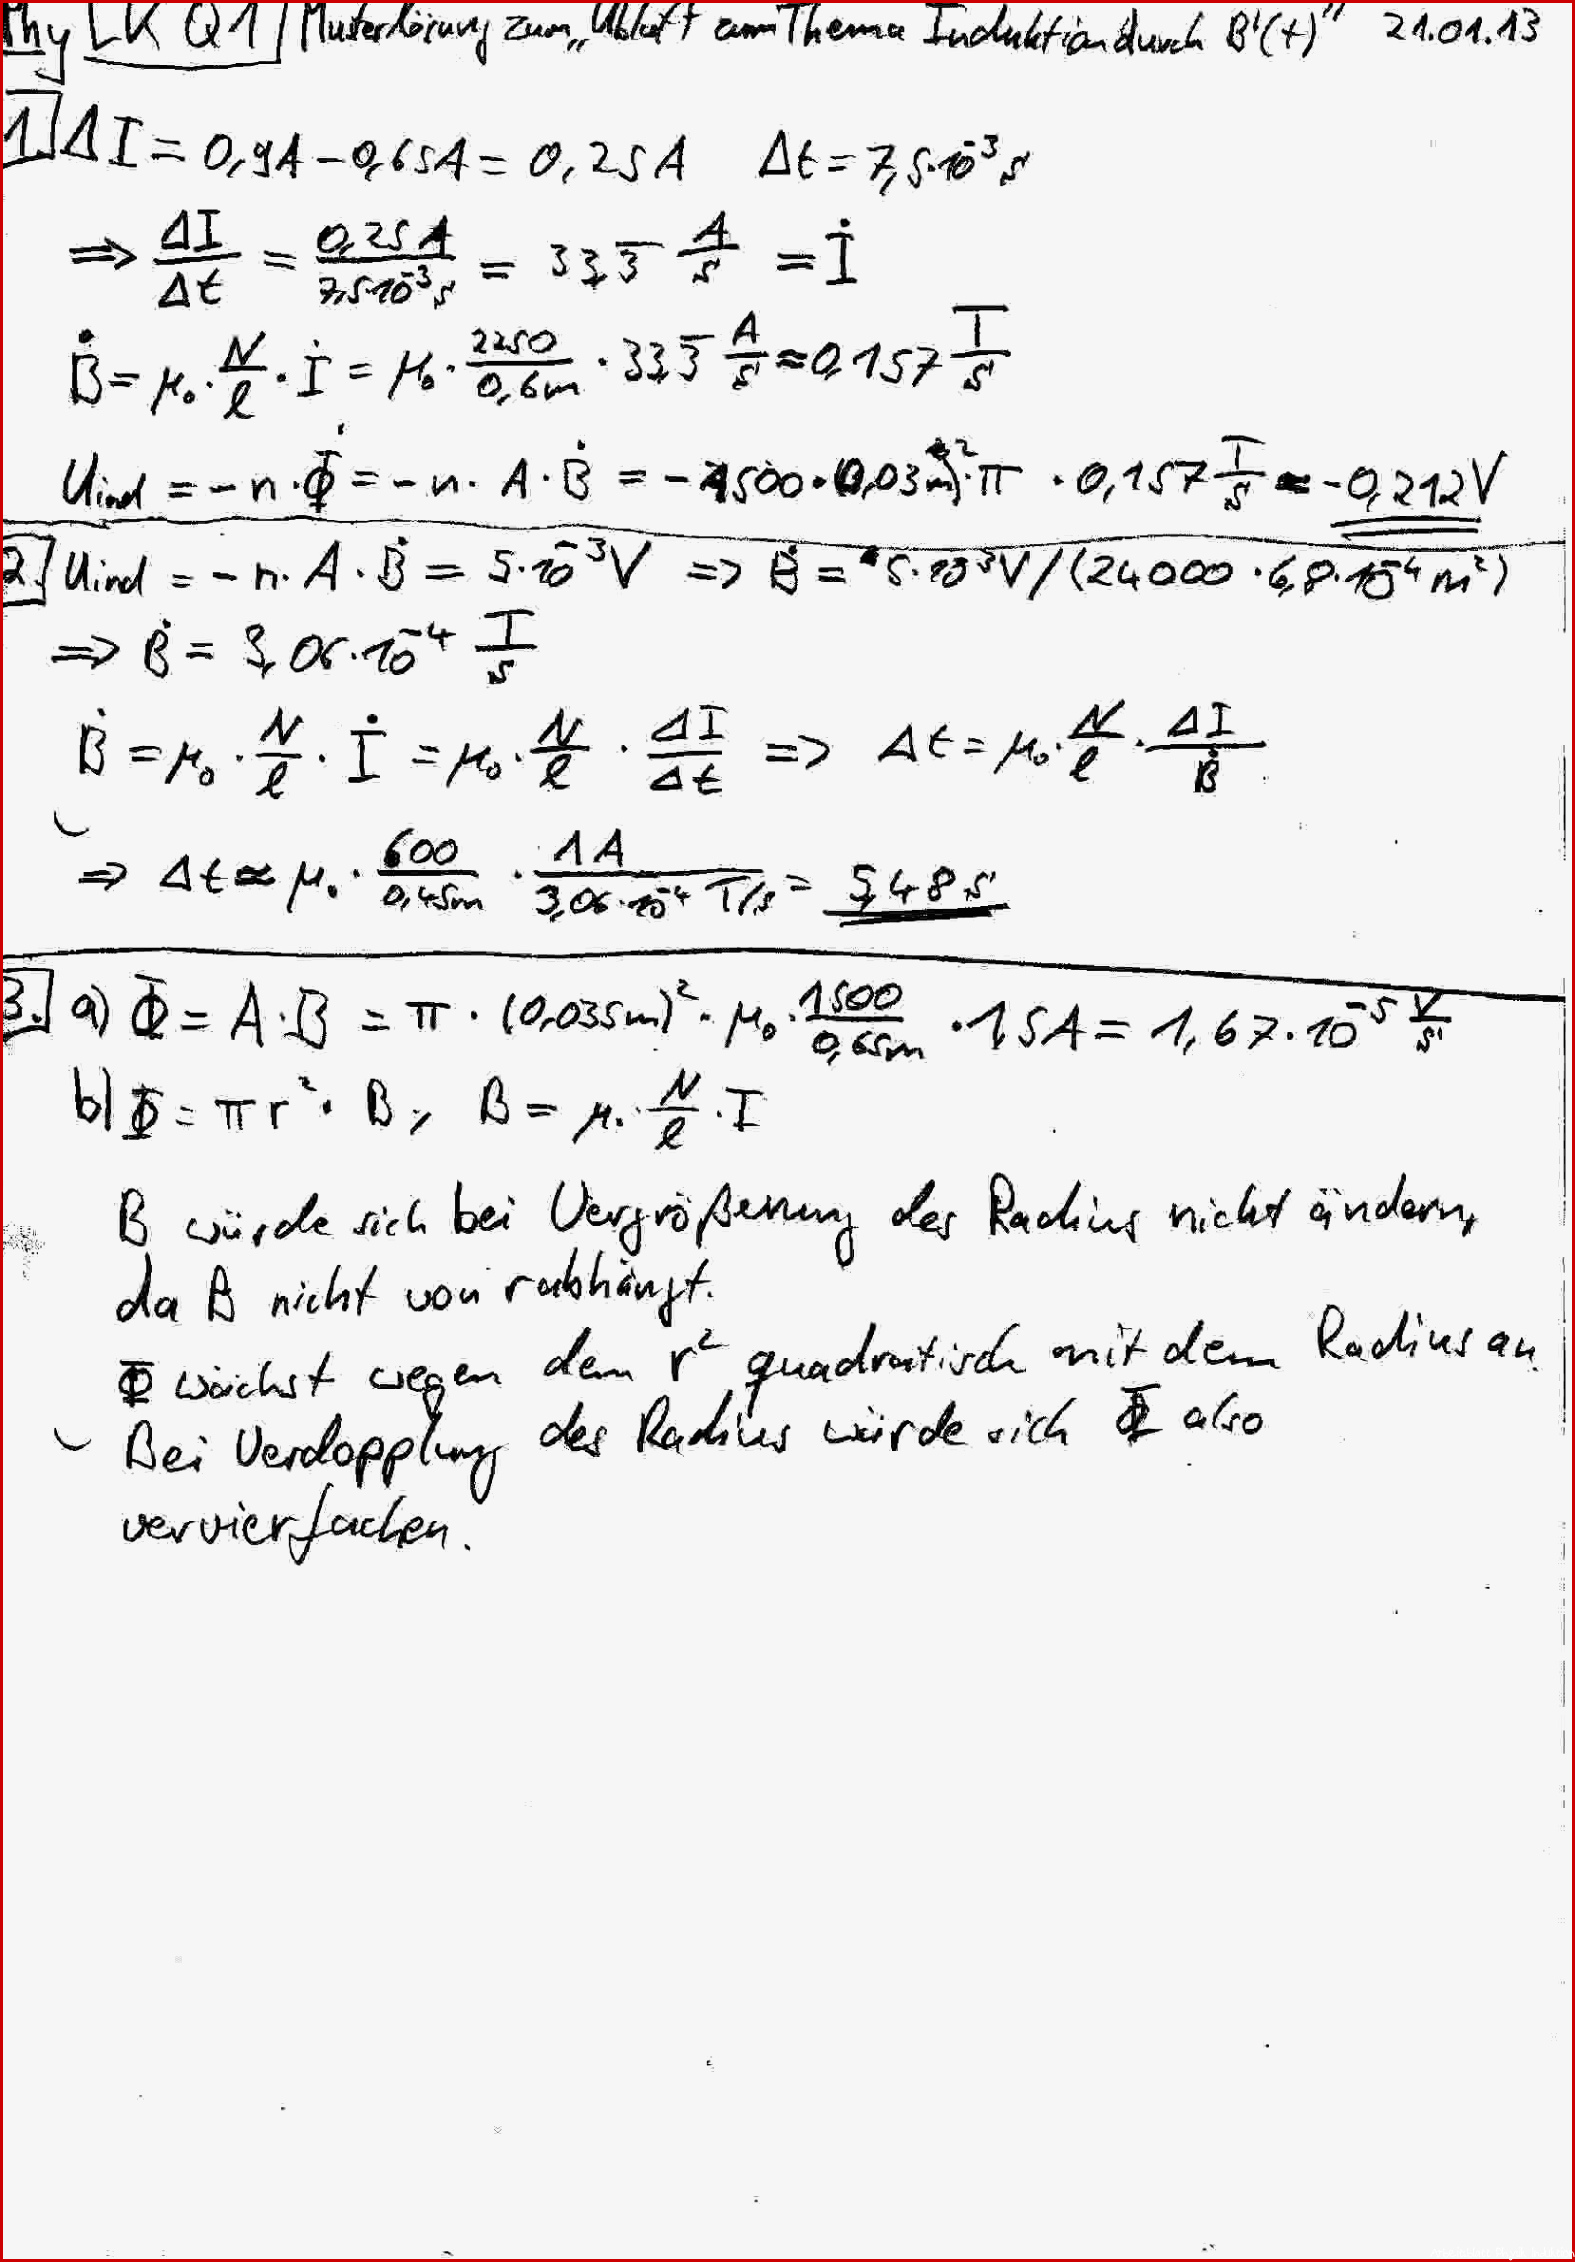 Phy LK Q1 Musterlösung zum „Üblatt zum Thema Induktion durch B'(t)" 21.01.13
1. ΔI = 0,9A - 0,65A = 0,25A Δt = 7,5·10⁻³s
⇒ ΔI/Δt = 0,25A/7,5·10⁻³s = 33,3̅ A/s = İ
Ḃ = μ₀ · N/l · İ = μ₀ · 2250/0,6m · 33,3̅ A/s ≈ 0,157 T/s
Uind = -n·Φ̇ = -n·A·Ḃ = -1500·(0,03m)²·π · 0,157 T/s ≈ -0,212V
2. Uind = -n·A·Ḃ = 5·10⁻³V ⇒ Ḃ = 5·10⁻³V/(24000·6,8·10⁻⁴m²)
⇒ Ḃ = 3,06·10⁻⁴ T/s
Ḃ = μ₀ · N/l · İ = μ₀ · N/l · ΔI/Δt ⇒ Δt = μ₀ · N/l · ΔI/Ḃ
⇒ Δt ≈ μ₀ · 600/0,45m · 1A/3,06·10⁻⁴ T/s = 5,48s
3. a) Φ = A·B = π · (0,035m)² · μ₀ · 1500/0,65m · 1,5A = 1,67·10⁻⁵ V/s
b) Φ = πr² · B, B = μ₀ · N/l · I
B würde sich bei Vergrößerung des Radius nicht ändern,
da B nicht von r abhängt.
Φ wächst wegen dem r² quadratisch mit dem Radius an.
Bei Verdopplung des Radius würde sich Φ also
vervierfachen.